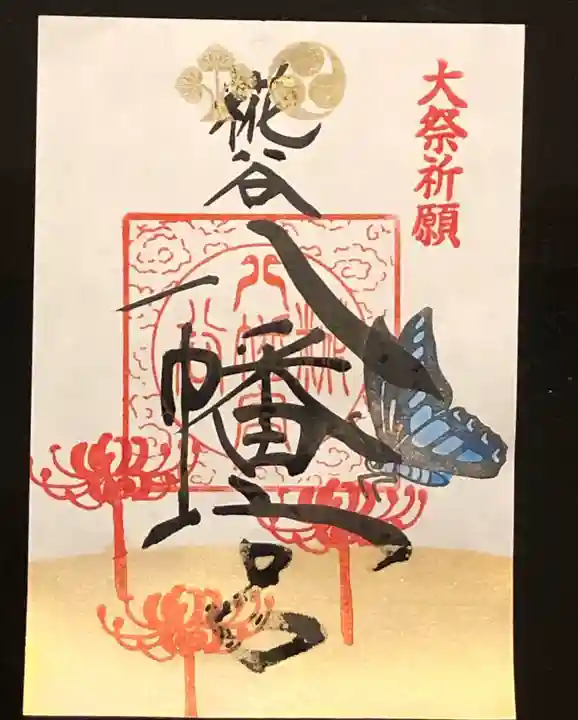 大祭祈願
糀谷
八幡宮